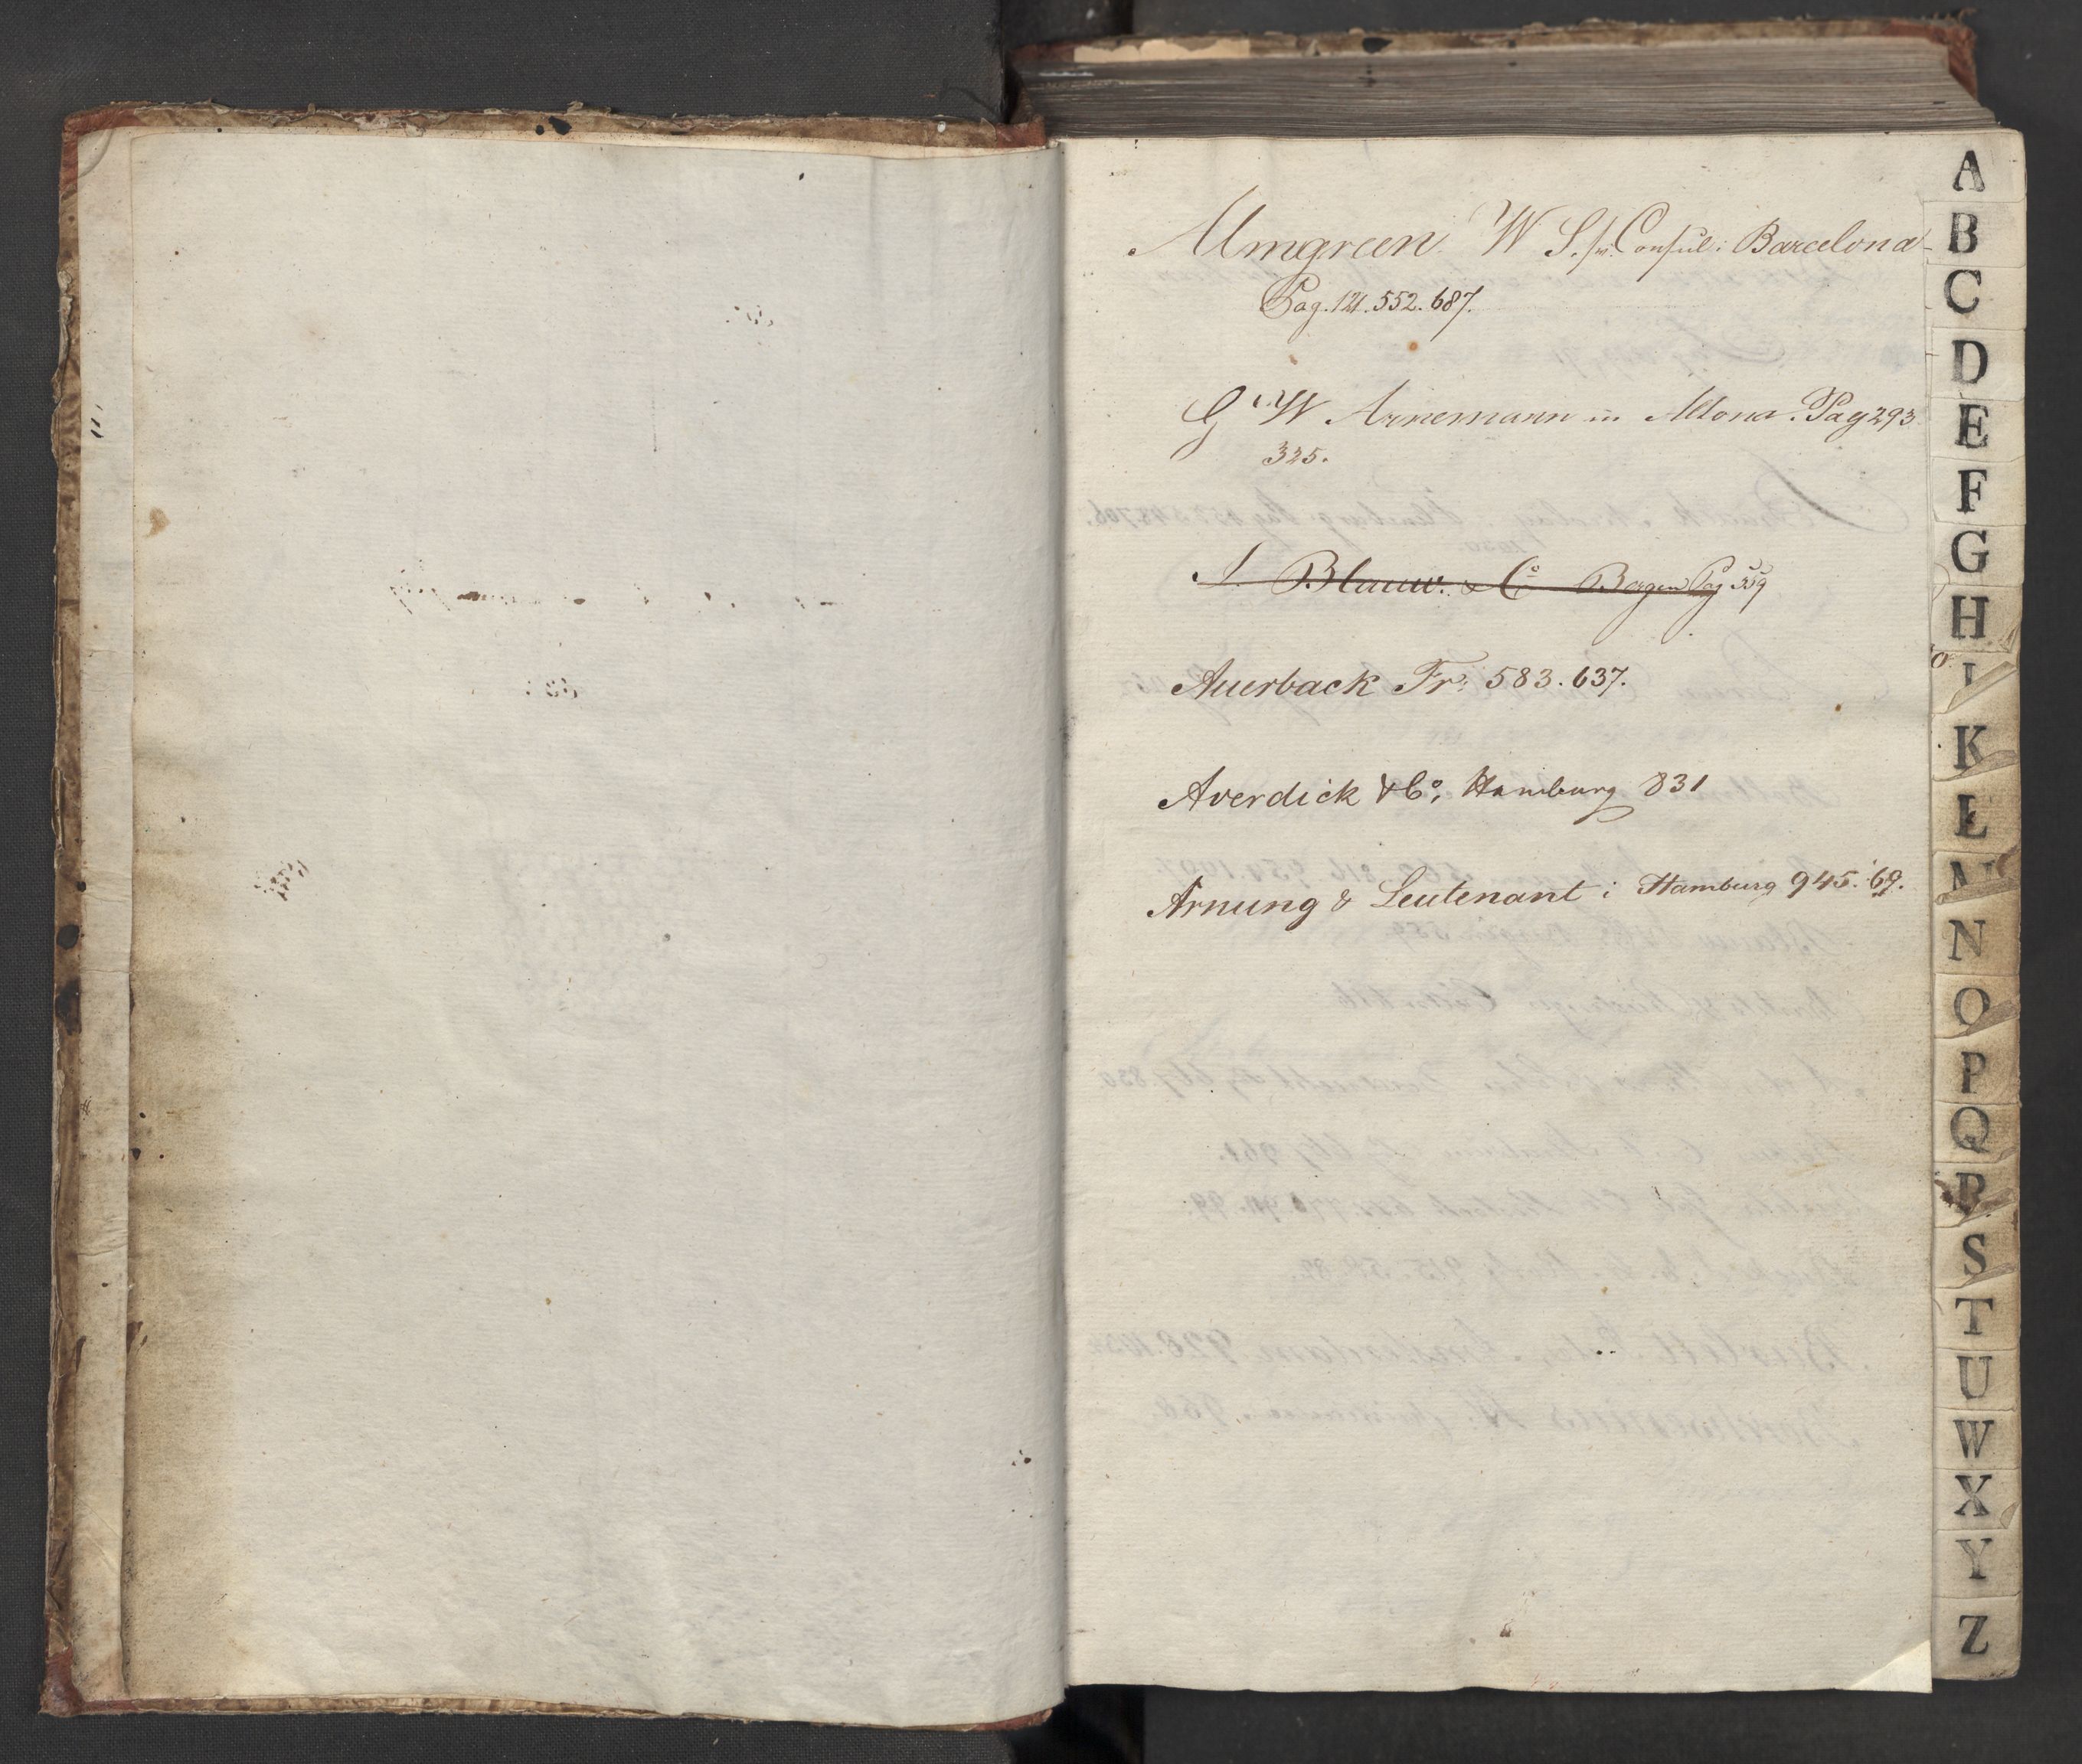 Almgreen W S. sv. Consul i Barcelona
Pag. 121. 552. 687.
G. W Arnemann in Altona. Pag 293
325.
J. Blauw. & Co Bergen Pag 559
Auerback Fr: 583. 637.
Averdick & Co, Hamburg 831
Arnung & Leutenant i Hamburg 945. 69.
A
B
C
D
E
F
G
H
I
K
L
M
N
O
P
Q
R
S
T
U
W
X
Y
Z